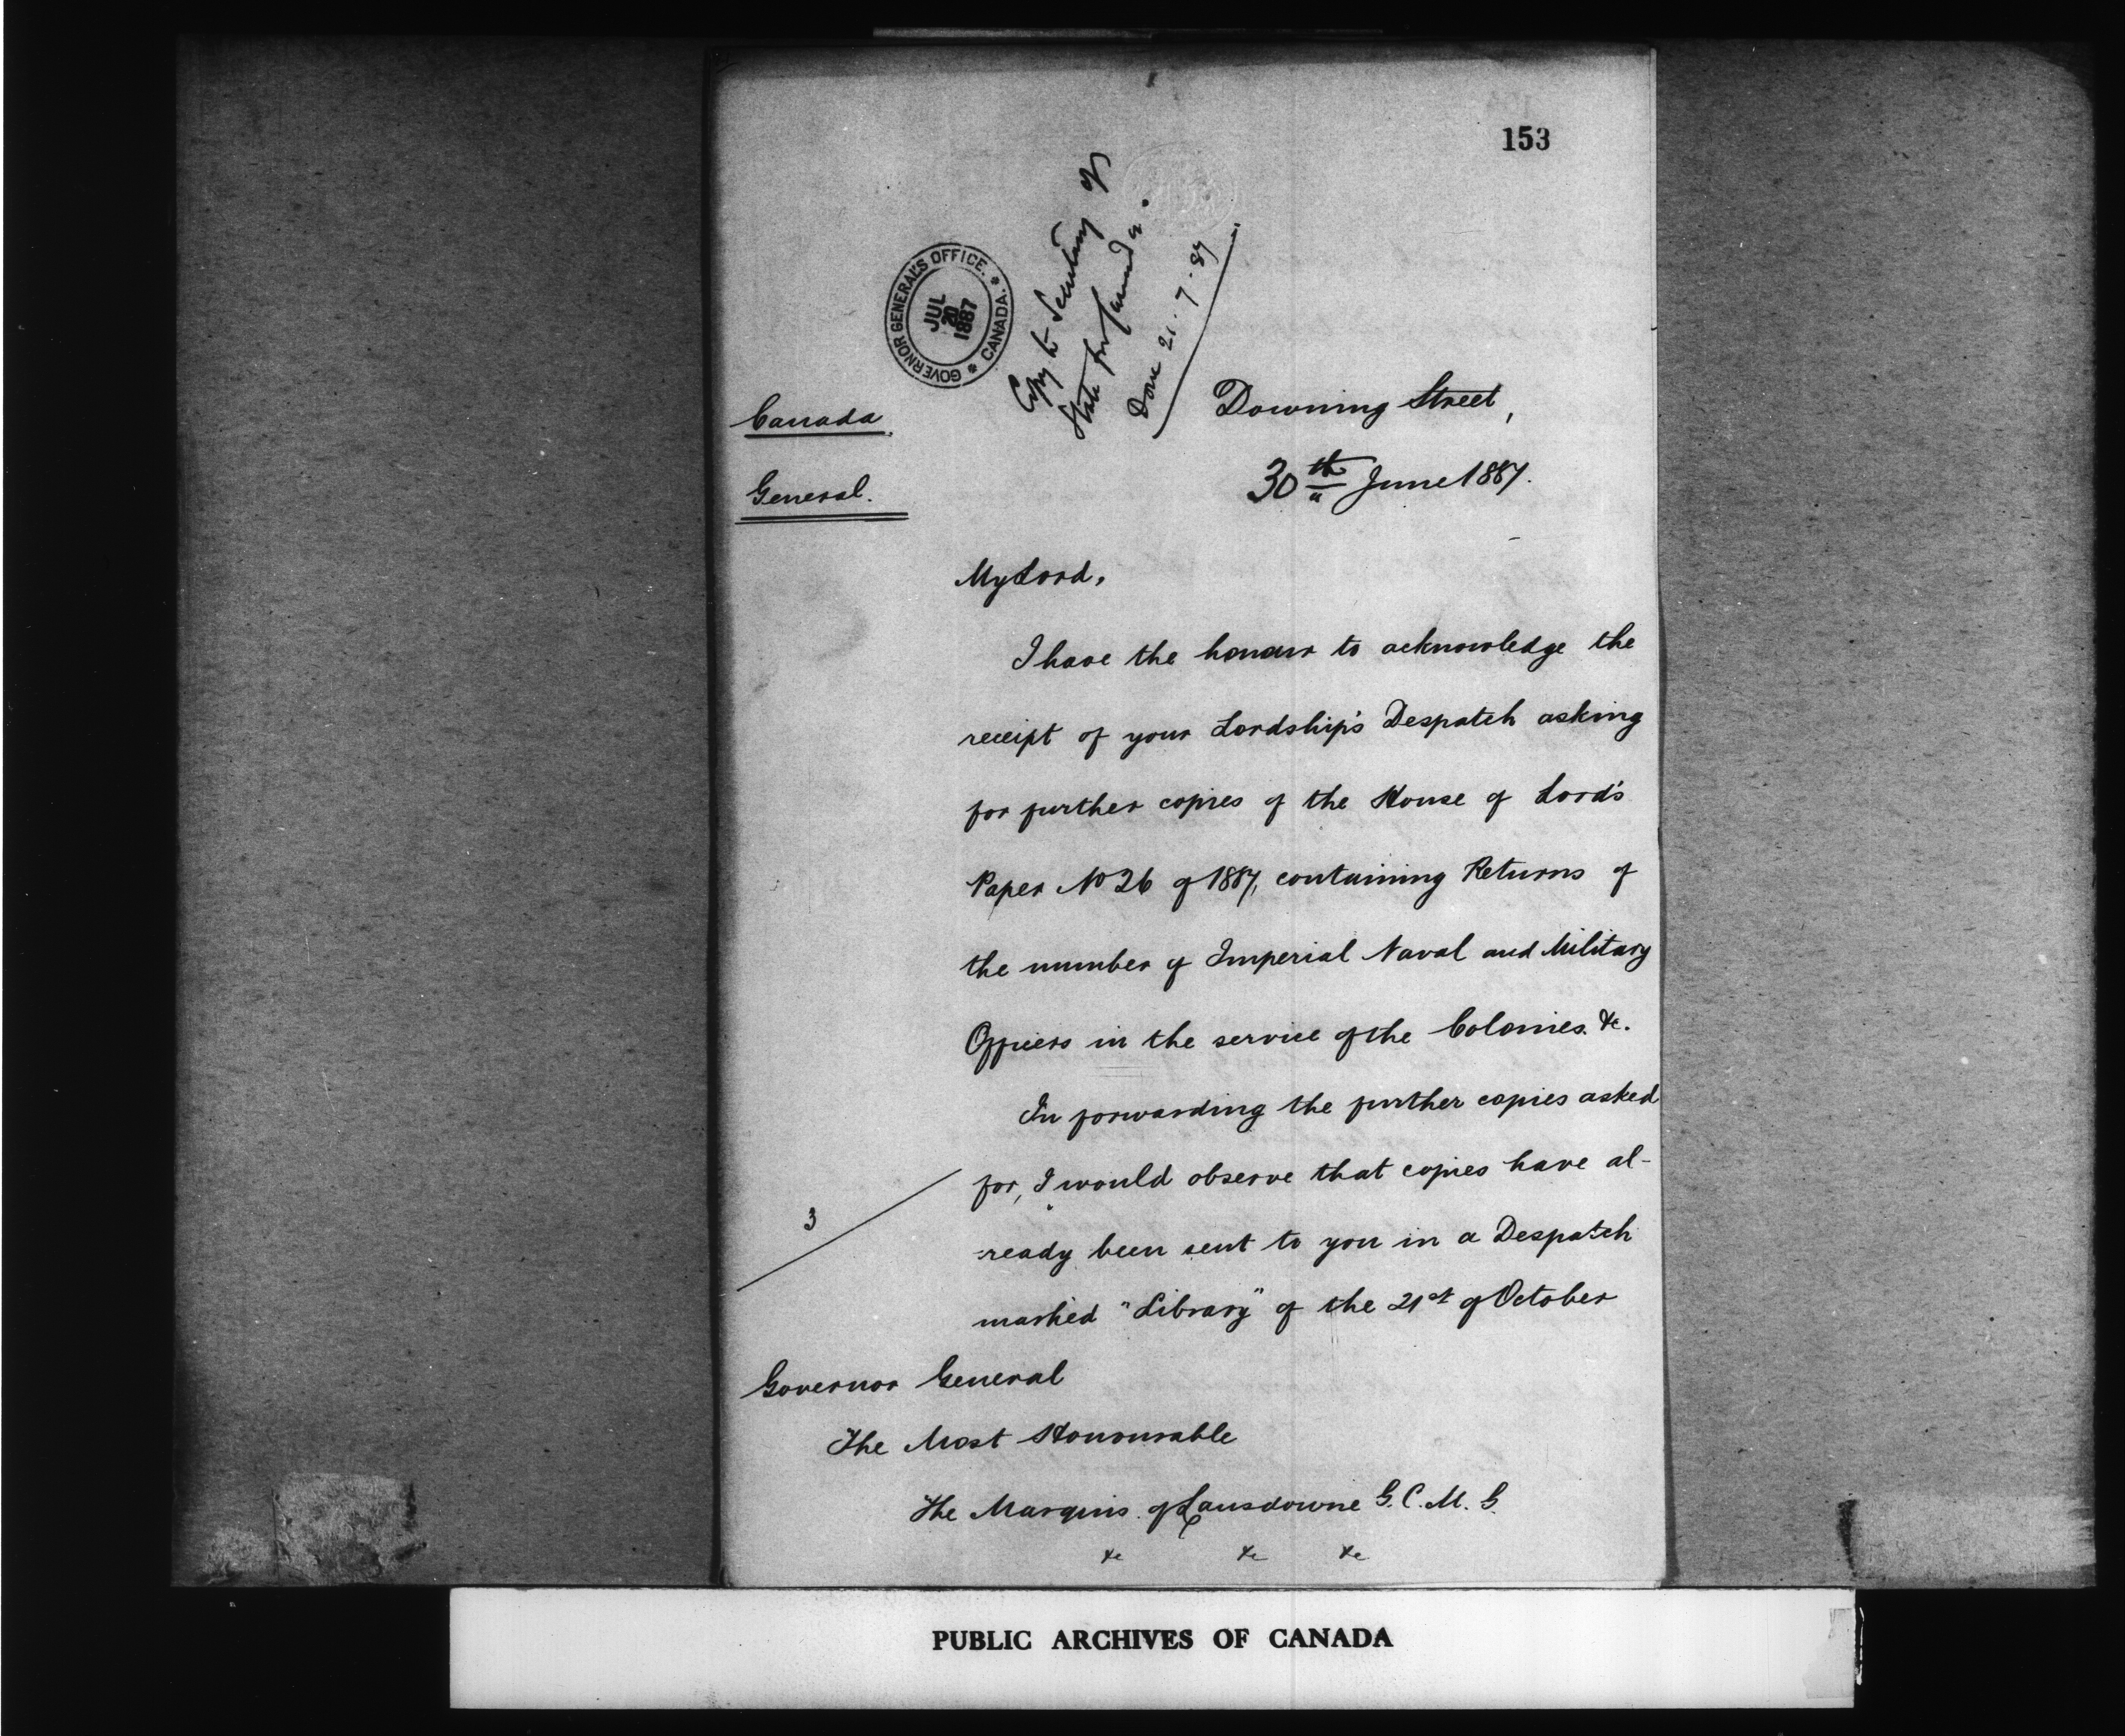 153
GOVERNOR GENERAL'S OFFICE. * CANADA. *
JUL
20
1887
Copy to Secretary of
State for Canada.
Done 21.7.87
Canada.
General.
Downing Street,
30th June 1887.
My Lord,
I have the honour to acknowledge the
receipt of your Lordship's Despatch asking
for further copies of the House of Lord's
Paper No 26 of 1887, containing Returns of
the number of Imperial Naval and Military
Officers in the service of the Colonies. &c.
In forwarding the further copies asked
for, I would observe that copies have al-
-ready been sent to you in a Despatch
marked "Library" of the 21st of October
3
Governor General
The Most Honourable
The Marquis of Lansdowne G.C.M.G.
&c &c &c
PUBLIC ARCHIVES OF CANADA